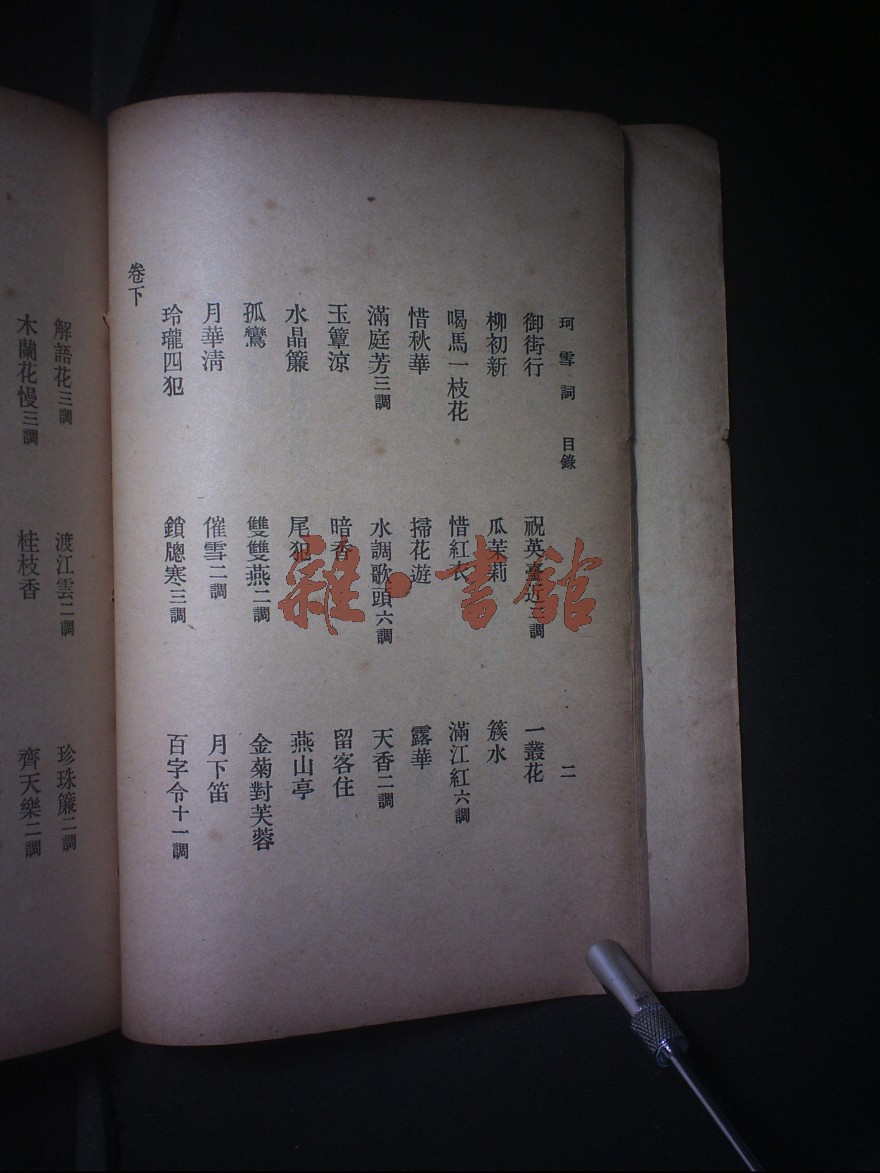 珂雪詞 目錄 二
御街行 祝英臺近三調 一叢花
柳初新 瓜茉莉 簇水
喝馬一枝花 惜紅衣 滿江紅六調
惜秋華 掃花遊 露華
滿庭芳三調 水調歌頭六調 天香二調
玉簟涼 暗香 留客住
水晶簾 尾犯 燕山亭
孤鸞 雙雙燕二調 金菊對芙蓉
月華淸 催雪二調 月下笛
玲瓏四犯 鎖牕寒三調 百字令十一調
卷下
解語花三調 渡江雲二調 珍珠簾二調
木蘭花慢三調 桂枝香 齊天樂二調
雜·書館